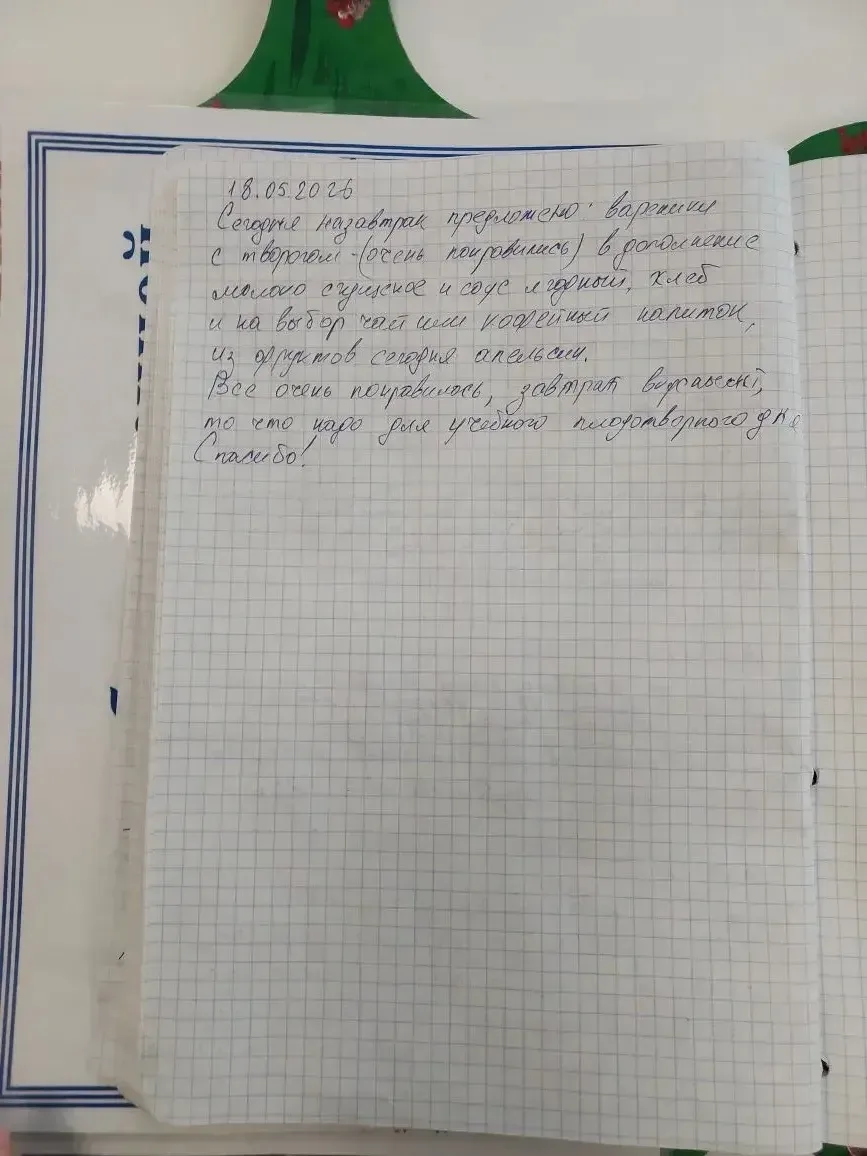 18.05.2026
Сегодня назавтрак предложено: вареники
с творогом - (очень понравились) в дополнение
молоко сгущеное и соус ягодный, хлеб
и на выбор чай или кофейный напиток,
из фруктов сегодня апельсин.
Все очень понравилось, завтрак
то что надо для учебного плодотворного дня
Спасибо!